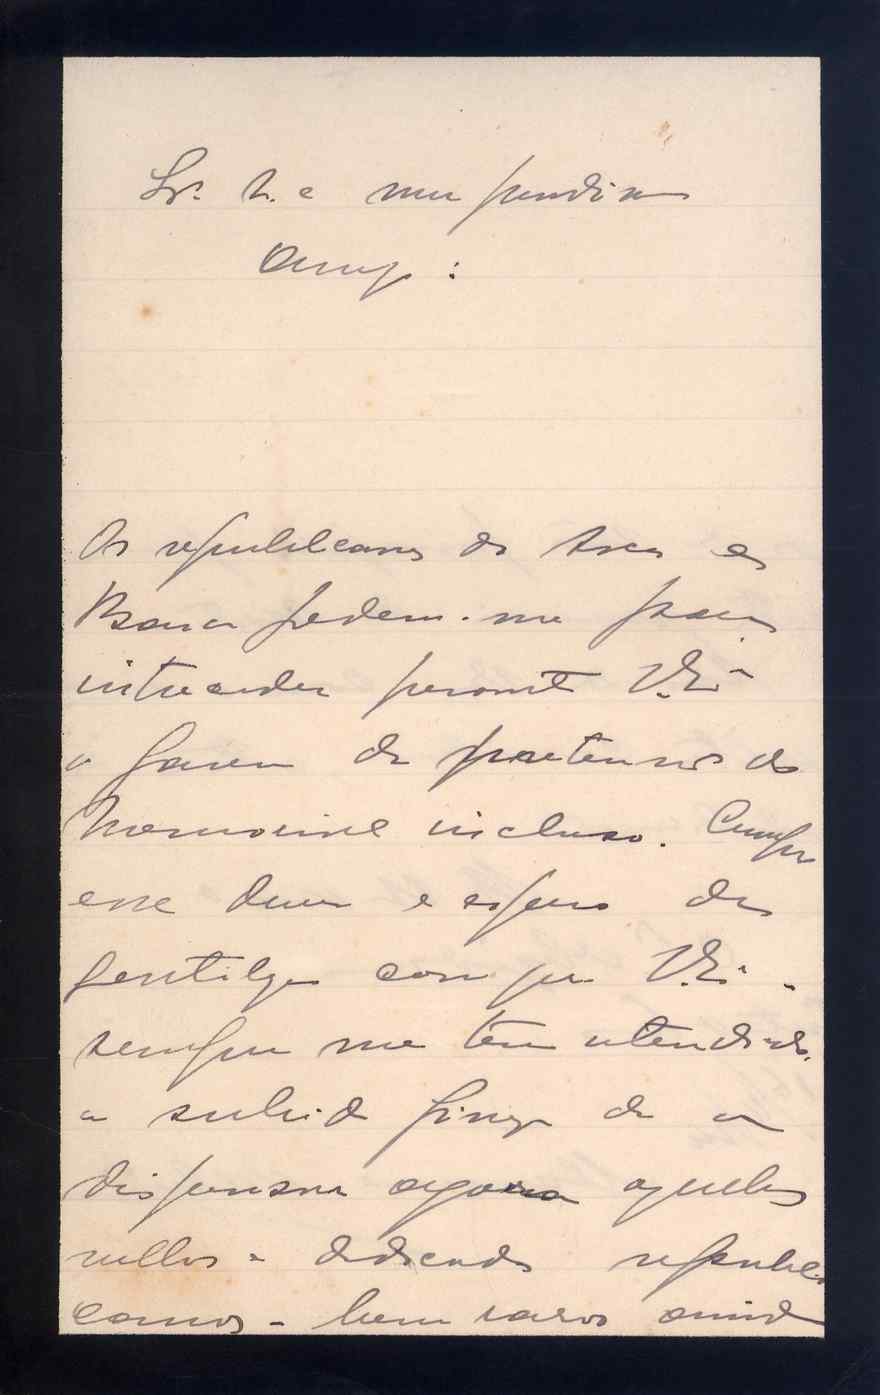 Sr. D. e meu
Amº:
Os republicanos de
pedem-me para
interceder perante V. Exª
a favor da pretensão do
Memorial incluso. Cumpro
esse dever e espero da
gentileza com que V. Ex.ª
sempre me tem attendido,
a subida fineza de a
dispensar agora aquelles
velhos e dedicados republi-
canos - bem raros ainda